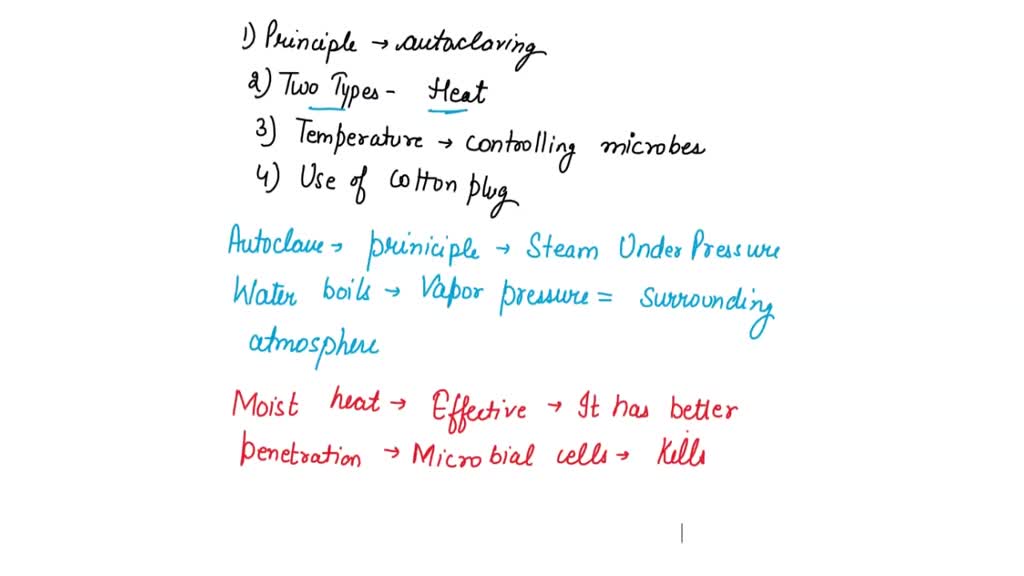 1) Principle → autoclaving
2) Two Types - Heat
3) Temperature → controlling microbes
4) Use of cotton plug
Autoclave → priniciple → Steam Under Pressure
Water boils → Vapor pressure = Surrounding
atmosphere
Moist heat → Effective → It has better
penetration → Microbial cells → Kills